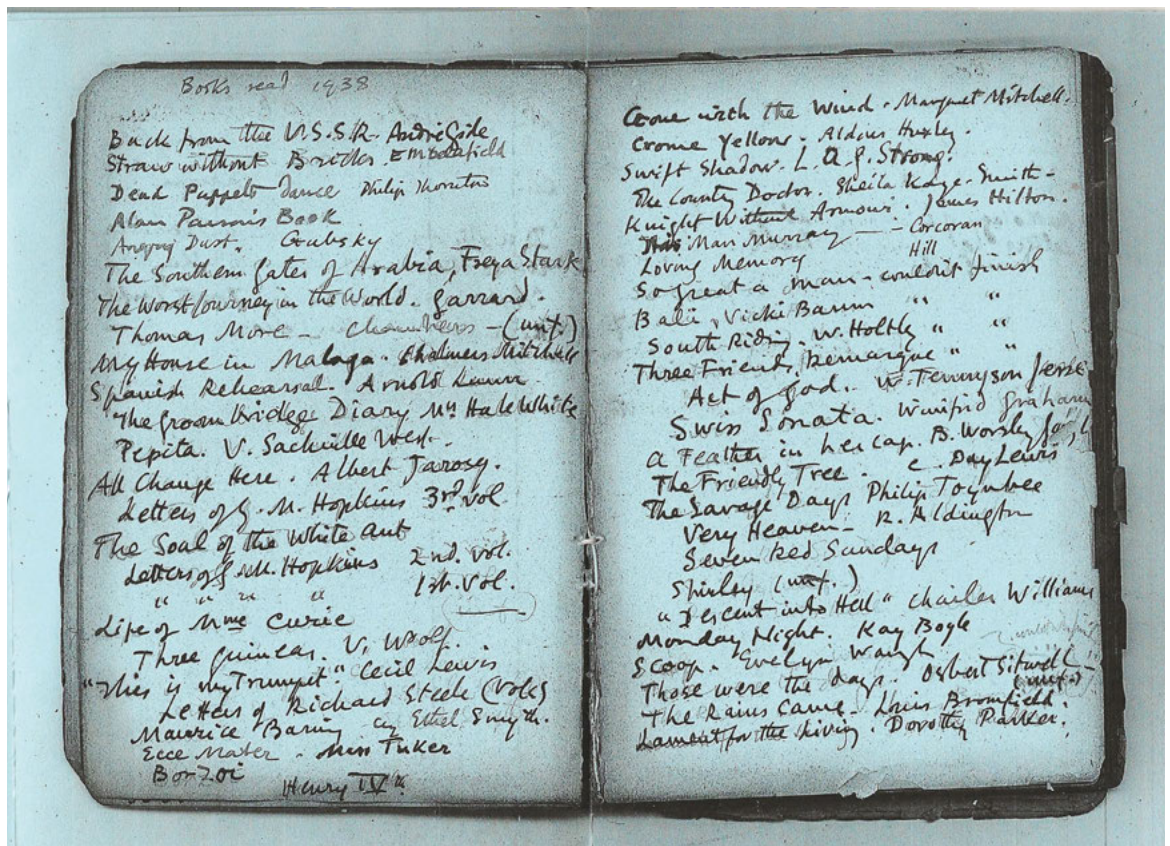 Books read 1938
Back from the U.S.S.R. André Gide
Straw without Bricks E M Delafield
Dead Puppets Dance Philip Thornton
Alan Parsons Book
Angry Dust. Gubsky
The Southern Gates of Arabia, Freya Stark
The Worst Journey in the World. Garrard.
Thomas More - Chambers - (unf.)
My House in Malaga. Chalmers Mitchell
Spanish Rehearsal. Arnold Lunn
The Groombridge Diary Mrs Hale White
Pepita. V. Sackville West.
All Change Here. Albert Jarosy.
Letters of G. M. Hopkins 3rd vol
The Soul of the White Ant
Letters of G. M. Hopkins 2nd. vol.
" " " " 1st. Vol.
Life of Mme Curie
Three Guineas. V. Woolf.
"This is my Trumpet" Cecil Lewis
Letters of Richard Steele (Vol
Maurice Baring by Ethel Smyth.
Ecce Mater. Miss Tuker
Borzoi
Henry IVth.
Gone with the Wind. Margaret Mitchell.
Crome Yellow. Aldous Huxley.
Swift Shadow. L. A. G. Strong.
The County Doctor. Sheila Kaye-Smith -
Knight Without Armour. James Hilton.
This Man Murray - - Corcoran
Loving Memory Hill
So great a man - couldn't finish
Bali, Vicki Baum " "
South Riding. W. Holtby " "
Three Friends. Remarque " "
Act of God. W. Tennyson Jesse
Swiss Sonata. Winifrid Graham
A Feather in her cap. B. Worsley
The Friendly Tree. C. Day Lewis
The Savage Days Philip Toynbee
Very Heaven - R. Aldington
Seven Red Sundays
Shirley (unf.)
"Descent into Hell" Charles Williams
Monday Night. Kay Boyle
Scoop. Evelyn Waugh
Those were the days. Osbert Sitwell - (unf.)
The Rains Came - Louis Bromfield.
Lament for the Living. Dorothy Parker.